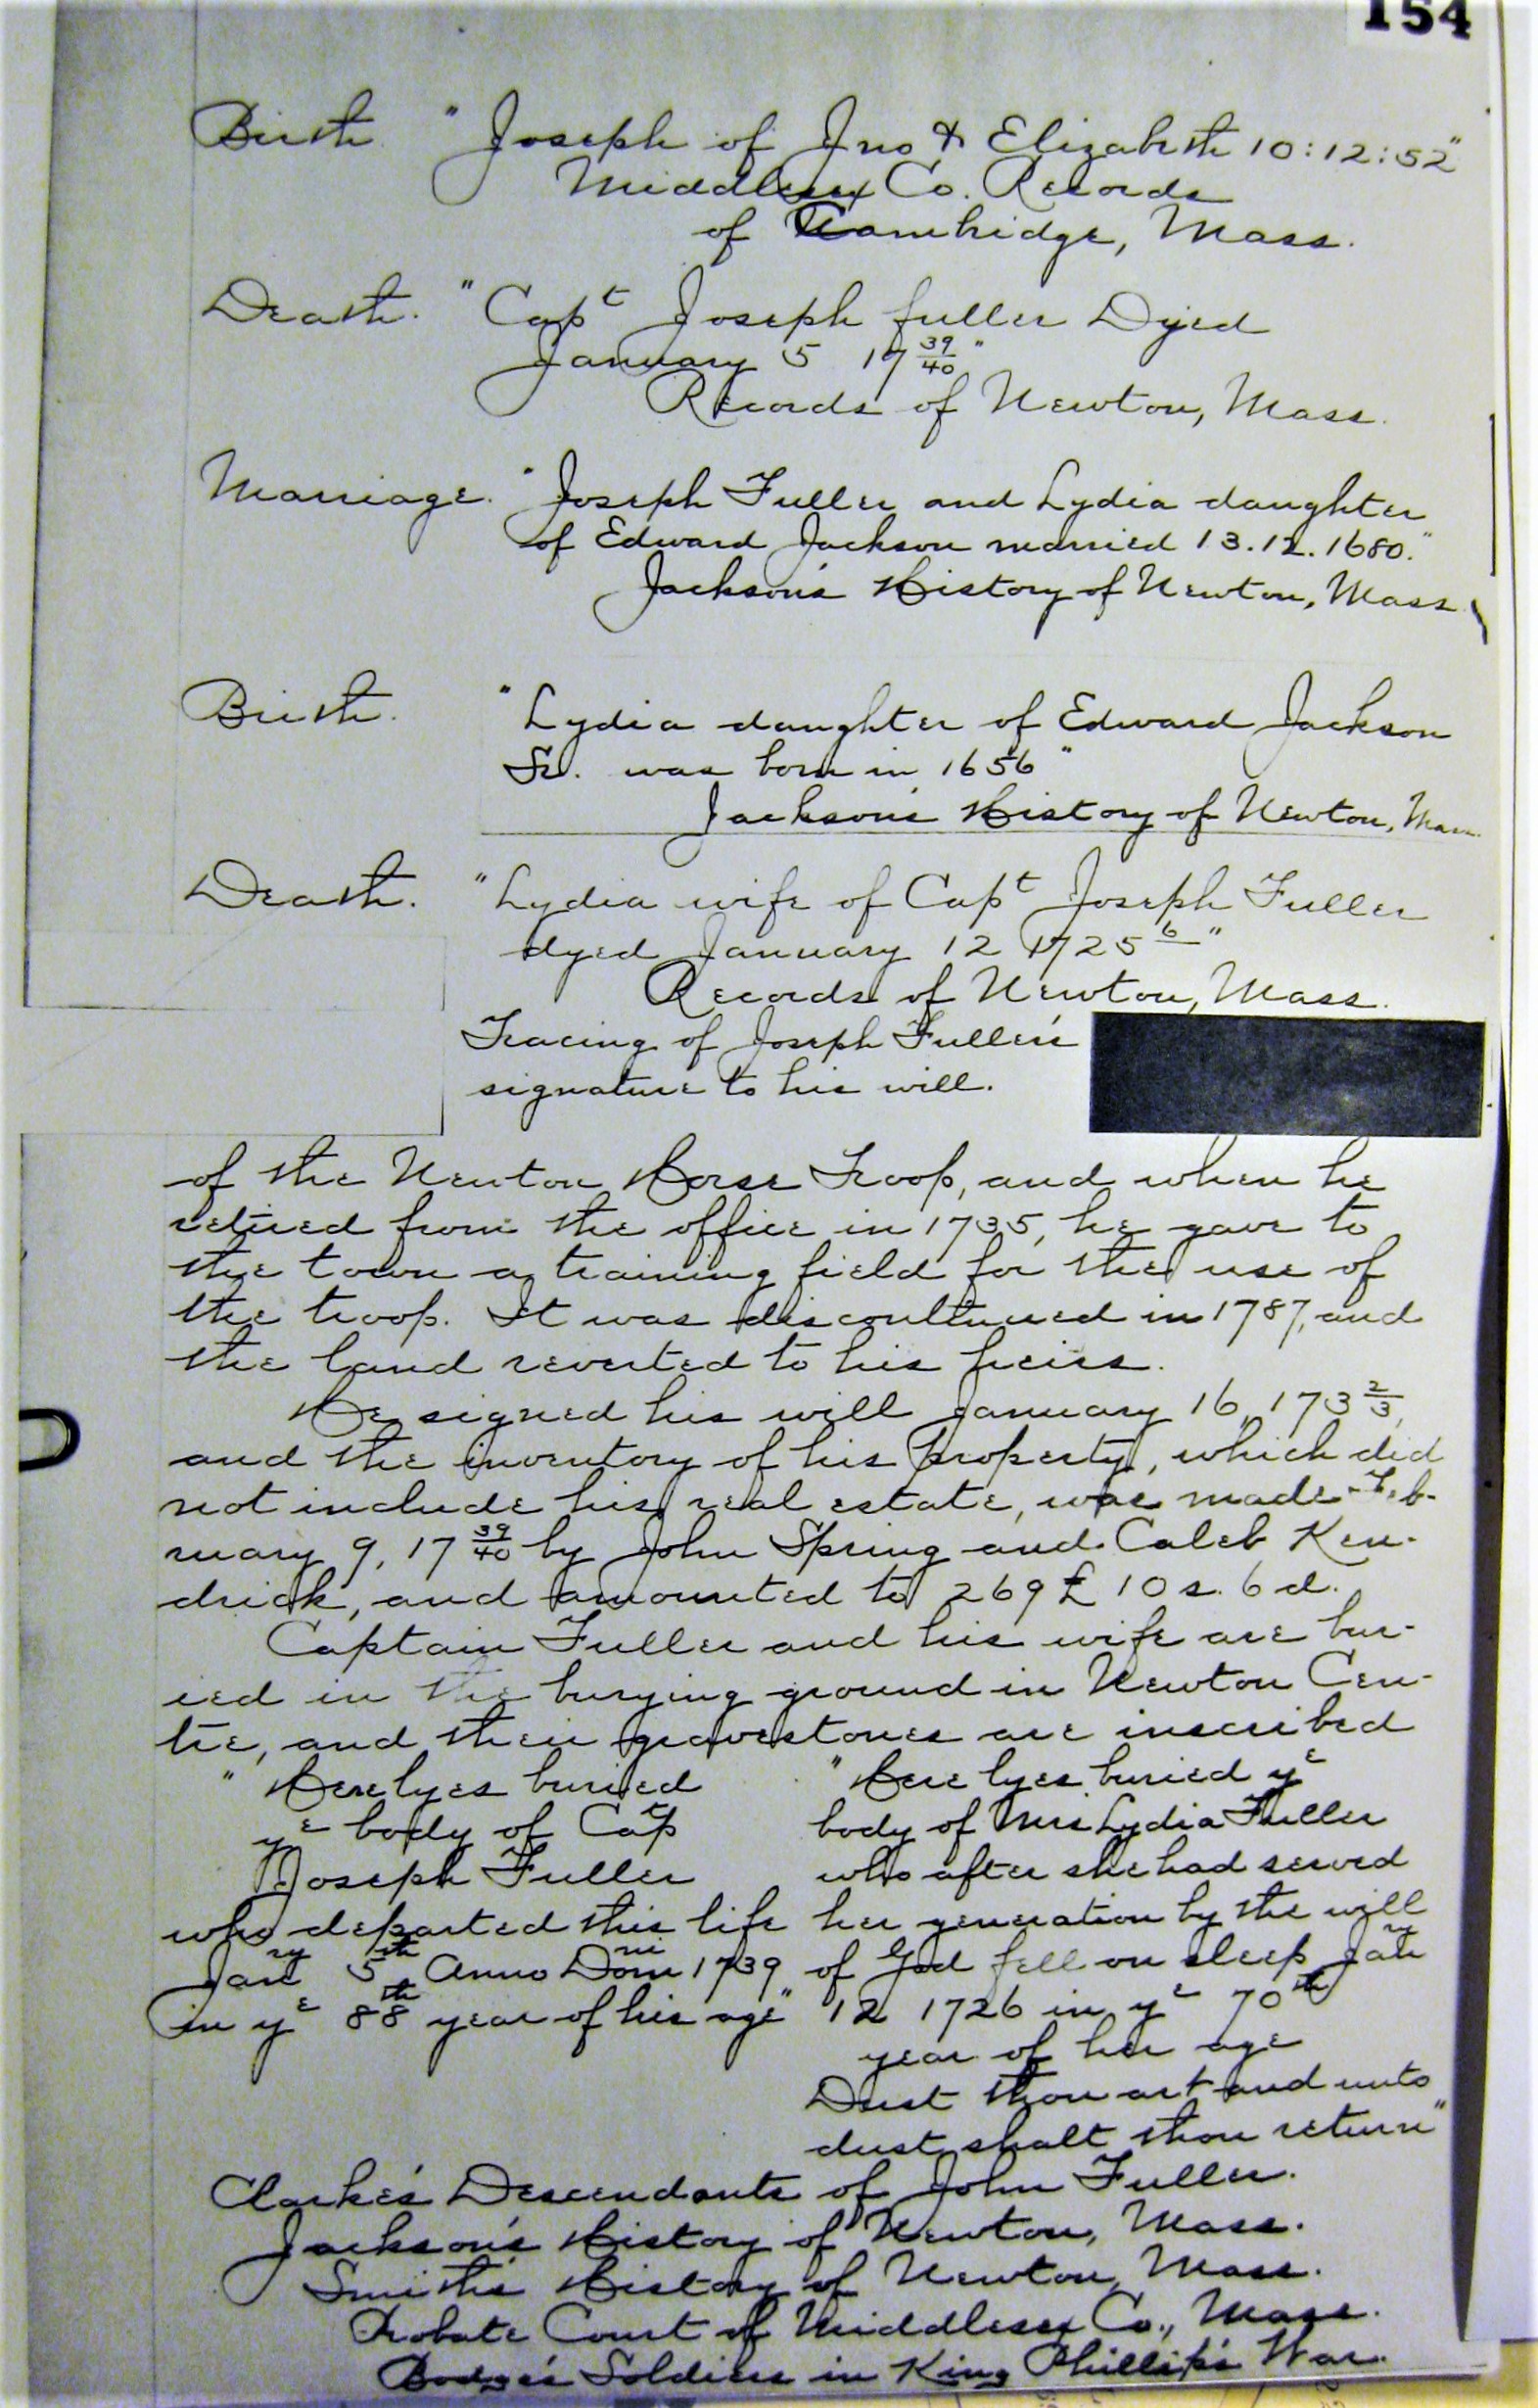 154
Birth. " Joseph of Jno & Elizabeth 10:12:52"
Middlesex Co. Records
of Cambridge, Mass.
Death. " Capt Joseph fuller Dyed
January 5 17 39/40 "
Records of Newton, Mass.
Marriage. " Joseph Fuller and Lydia daughter
of Edward Jackson married 13.12.1680."
Jackson's History of Newton, Mass.
Birth. " Lydia daughter of Edward Jackson
Sr. was born in 1656 "
Jackson's History of Newton, Mass.
Death. " Lydia wife of Capt Joseph Fuller
dyed January 12 1725 6 "
Records of Newton, Mass.
Tracing of Joseph Fuller's
signature to his will.
of the Newton Horse Troop, and when he
retired from the office in 1735, he gave to
the town a training field for the use of
the troop. It was discontinued in 1787, and
the land reverted to his heirs.
He signed his will January 16, 173 2/3,
and the inventory of his property, which did
not include his real estate, was made Feb-
ruary 9, 17 39/40 by John Spring and Caleb Ken-
drick, and amounted to 269 £ 10 s. 6 d.
Captain Fuller and his wife are bur-
ied in the burying ground in Newton Cen-
tre, and their gravestones are inscribed
" Here lyes buried
ye body of Capt
Joseph Fuller
who departed this life
Janry 5th Anno Domni 1739
in ye 88th year of his age"
" Here lyes buried ye
body of Mrs Lydia Fuller
who after she had served
her generation by the will
of God fell on sleep Janry
12 1726 in ye 70th
year of her age
Dust thou art and unto
dust shalt thou return"
Clarke's Descendants of John Fuller.
Jackson's History of Newton, Mass.
Smith's History of Newton, Mass.
Probate Court of Middlesex Co., Mass.
Bodge's Soldiers in King Phillip's War.